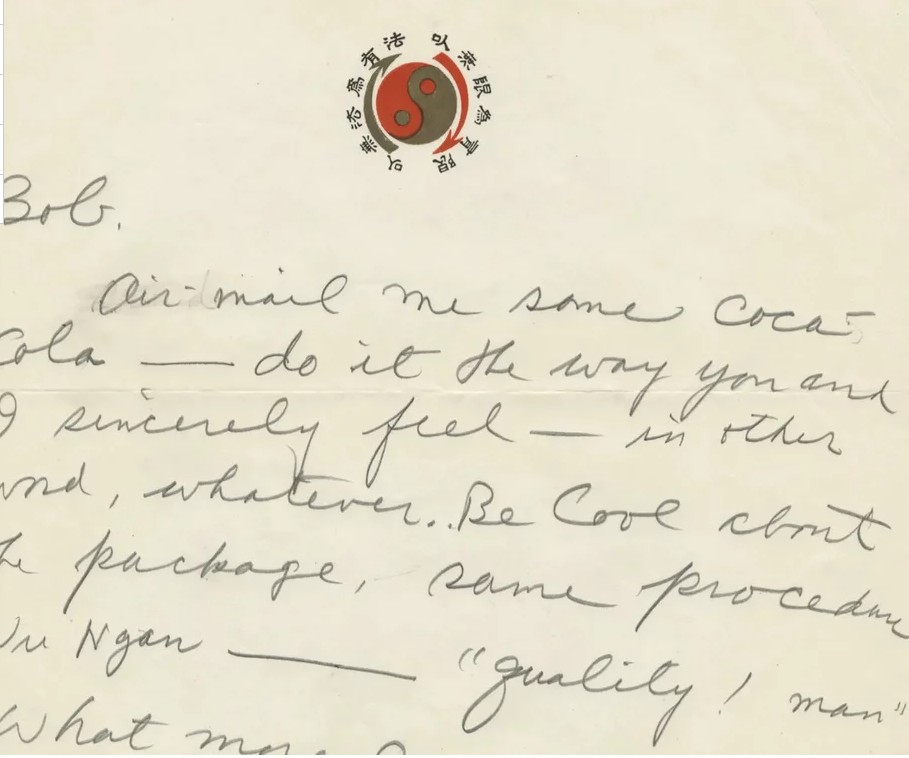 以無法爲有法
以無限為有限
Bob,
Air-mail me some Coca-
Cola — do it the way you and
I sincerely feel — in other
word, whatever.. Be Cool about
he package, same procedure
Wu Ngan — "quality! man"
What more